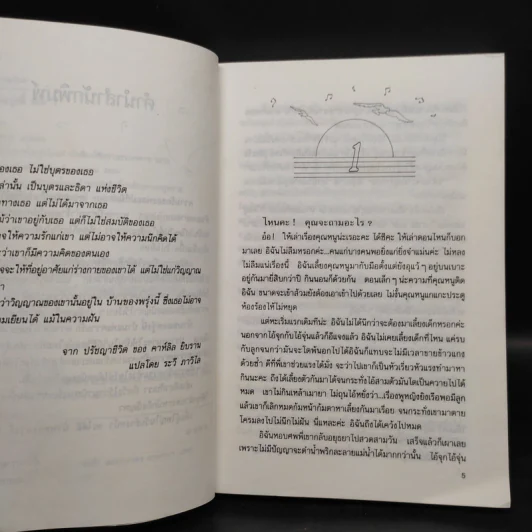 องเธอ ไม่ใช่บุตรของเธอ
านั้น เป็นบุตรและธิดา แห่งชีวิต
ทางเธอ แต่ไม่ได้มาจากเธอ
ว่าเขาอยู่กับเธอ แต่ก็ไม่ใช่สมบัติของเธอ
ให้ความรักแก่เขา แต่ไม่อาจให้ความนึกคิดได้
ว่าเขาก็มีความคิดของตนเอง
จะให้ที่อยู่อาศัยแก่ร่างกายของเขาได้ แต่ไม่ใช่แก่วิญญาณ
ว่าวิญญาณของเขานั้นอยู่ใน บ้านของพรุ่งนี้ ซึ่งเธอไม่อาจ
เยือนได้ แม้ในความฝัน
จาก ปรัชญาชีวิต ของ คาห์ลิล ยิบราน
แปลโดย ระวี ภาวิไล
1
ไหนคะ ! คุณจะถามอะไร ?
อ้อ! ให้เล่าเรื่องคุณหนูน่ะเรอะคะ ได้ซีคะ ให้เล่าตอนไหนก็บอก
มาเลยค่ะ อิฉันไม่ลืมหรอกค่ะ...คนแก่บางคนพอยิ่งแก่ยิ่งจำแม่นค่ะ ไม่หลง
ไม่ลืมแน่เรื่องนี้ อิฉันเลี้ยงคุณหนูมากับมือตั้งแต่ยังอุแว้ๆ อยู่บนเบาะ
อยู่กันมายี่สิบกว่าปี กินนอนก็ด้วยกัน ตอนเล็กๆ น่ะความที่คุณหนูติด
อิฉัน ขนาดจะเข้าส้วมยังต้องเอาเข้าไปด้วยเลย ไม่งั้นคุณหนูแกกะประตู
ห้องร้องไห้ไม่หยุด
แต่พะเริ่มแรกเดิมทีน่ะ อิฉันไม่ได้นึกว่าจะต้องมาเลี้ยงเด็กหรอกค่ะ
นอกจากไอ้จุกกับไอ้จุ่นแล้วก็อีแจงแล้ว อิฉันไม่เคยเลี้ยงเด็กที่ไหน แค่รบ
กับลูกจนกว่ามันจะโตพ้นอกไปได้อิฉันก็แทบจะไม่มีเวลาขายข้าวแกง
ด้วยซ้ำ ดีที่พี่เผาช่วยแรงได้มั่ง
กินนะคะ ถึงได้เลี้ยงตัวกันมาได้จนกระทั่งไอ้สามตัวมันโตเป็นควายไปได้
หมด เขาไม่กินเหล้าเมายา ไม่ถุนไอ้หยังว่า...เรื่องผู้หญิงยิงเรือพอมีลูก
แล้วเขาก็เลิกหมดก้มหน้าก้มตาหาเลี้ยงกันมาเรื่อย จนกระทั่งเขามาตาย
โครมลงไปไม่นึกไม่ฝัน นี่แหละค่ะ อิฉันถึงได้เคว้งไปหมด
อิฉันหอบศพพี่เขากลับอยุธยาไปสวดสามวัน เสร็จแล้วก็เผาเลย
เพราะไม่มีปัญญาจะตำน้ำพริกละลายแม่น้ำได้มากกว่านั้น ไอ้จุกไอ้จุ่น
5